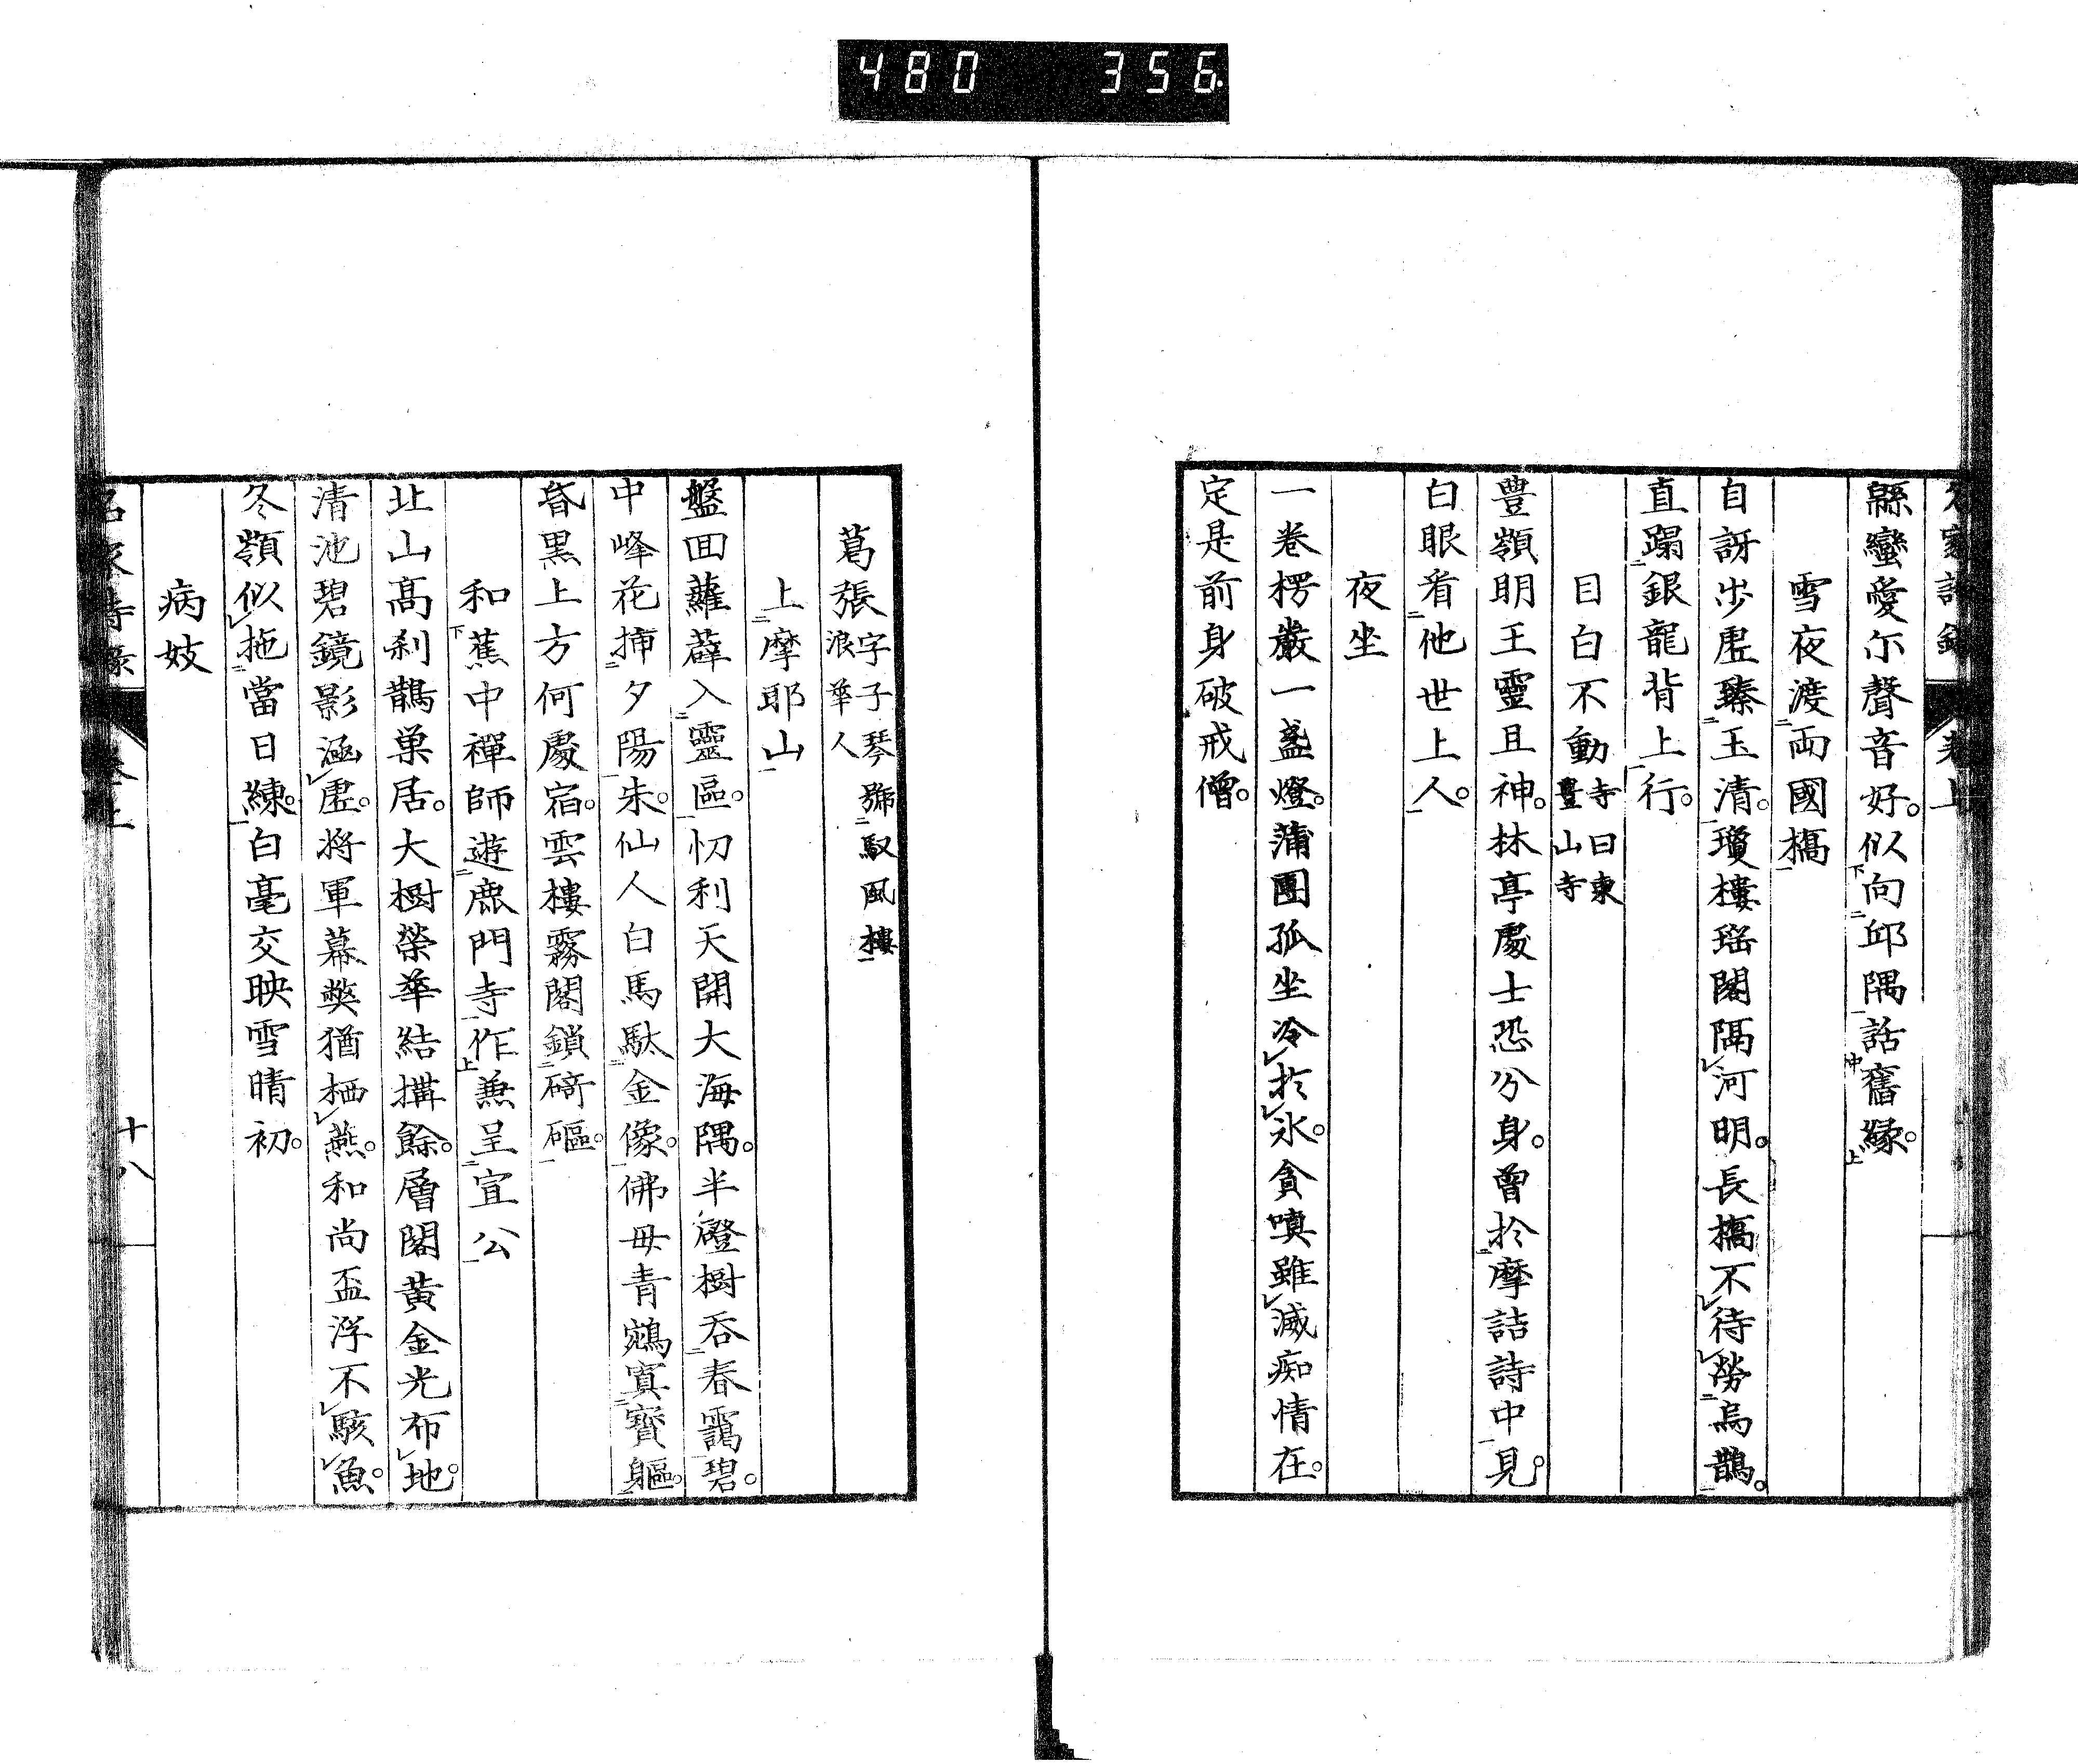 480 356
名家詩録 卷上
緜蠻愛尓聲音好似向邱隅話舊緣
雪夜渡両國橋
自訝步虚臻玉清瓊樓瑶閣隔河明長橋不待勞烏鵲
直蹋銀龍背上行
目白不動寺曰東豊山寺
豊嶺明王靈且神林亭處士恐分身曾於摩詰詩中見
白眼看他世上人
夜坐
一卷楞嚴一盞燈蒲團孤坐冷於氷貪嗔雖滅痴情在
定是前身破戒僧
葛張字子琴號馭風樓浪華人
上摩耶山
盤囬蘿薜入靈區忉利天開大海隅半磴樹吞春靄碧
中峰花揷夕陽朱仙人白馬駄金像佛母青鵷寘寶軀
昏黒上方何處宿雲樓霧閣鎖𥔎嶇
和蕉中禪師遊鹿門寺作兼呈宜公
北山高刹鵲巢居大樹榮華結搆餘層閣黄金光布地
清池碧鏡影涵虚將軍幕弊猶栖燕和尚盃浮不駭魚
冬嶺似拖當日練白毫交映雪晴初
病妓
名家詩録 卷上 十八